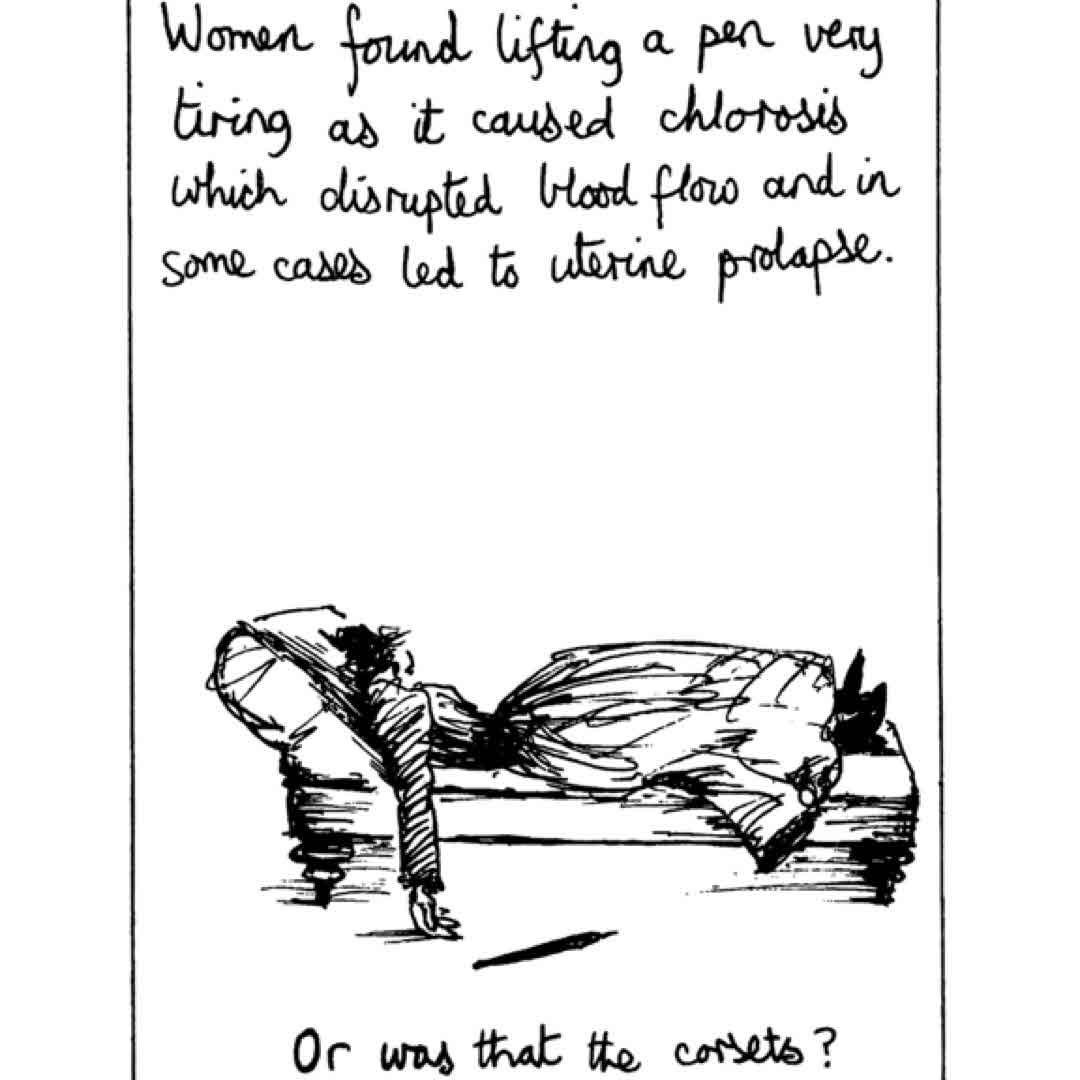 Women found lifting a pen very
tiring as it caused chlorosis
which disrupted blood flow and in
some cases led to uterine prolapse.
Or was that the corsets?